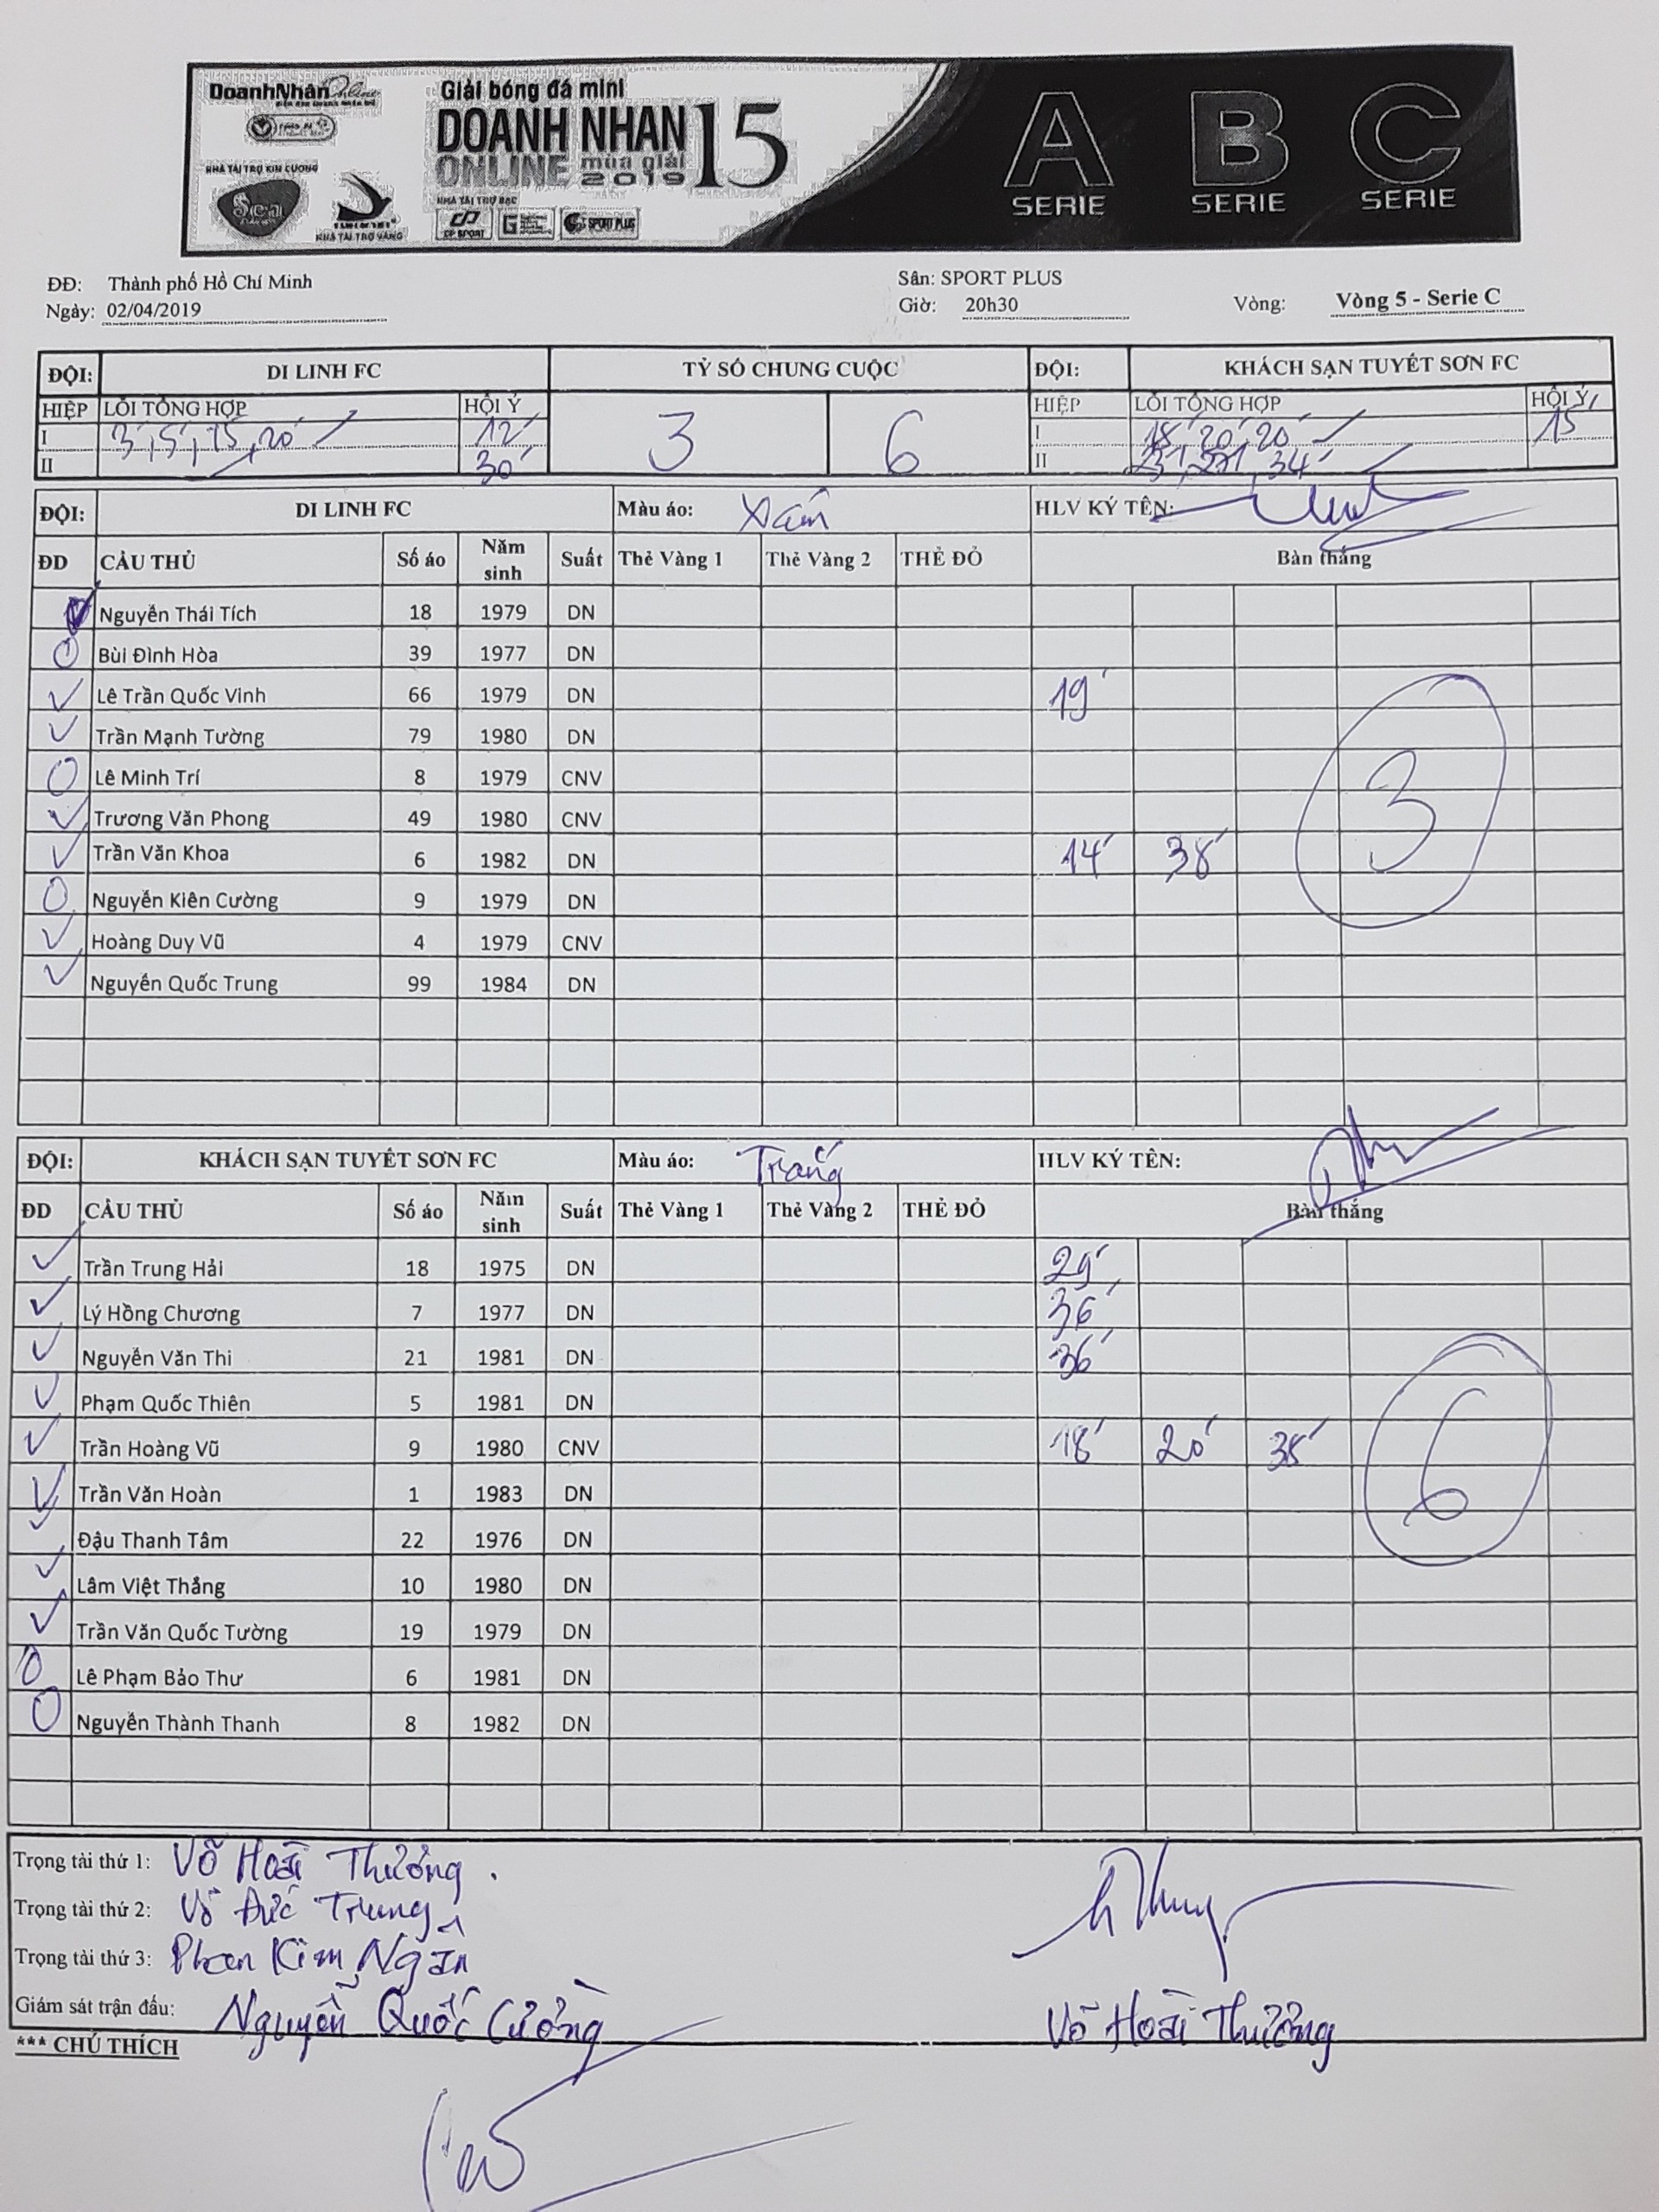 DoanhNhân Online
Giải bóng đá mini
DOANH NHAN 15
ONLINE mùa giải 2019
NHÀ TÀI TRỢ KIM CƯƠNG
NHÀ TÀI TRỢ VÀNG
NHÀ TÀI TRỢ BẠC
CP SPORT
SPORT PLUS
A SERIE B SERIE C SERIE
ĐĐ: Thành phố Hồ Chí Minh Sân: SPORT PLUS
Ngày: 02/04/2019 Giờ: 20h30 Vòng: Vòng 5 - Serie C
ĐỘI: DI LINH FC TỶ SỐ CHUNG CUỘC ĐỘI: KHÁCH SẠN TUYẾT SƠN FC
HIỆP LỖI TỔNG HỢP HỘI Ý 3 6 HIỆP LỖI TỔNG HỢP HỘI Ý
I 3', 5', 15', 20' 12' I 18' 20' 20' 15'
II 30' II 34'
ĐỘI: DI LINH FC Màu áo: Xám HLV KÝ TÊN:
ĐD CẦU THỦ Số áo Năm sinh Suất Thẻ Vàng 1 Thẻ Vàng 2 THẺ ĐỎ Bàn thắng
Nguyễn Thái Tích 18 1979 DN
Bùi Đình Hòa 39 1977 DN
Lê Trần Quốc Vinh 66 1979 DN 19'
Trần Mạnh Tường 79 1980 DN
Lê Minh Trí 8 1979 CNV
3
Trương Văn Phong 49 1980 CNV
Trần Văn Khoa 6 1982 DN 14' 38'
Nguyễn Kiên Cường 9 1979 DN
Hoàng Duy Vũ 4 1979 CNV
Nguyễn Quốc Trung 99 1984 DN
ĐỘI: KHÁCH SẠN TUYẾT SƠN FC Màu áo: Trắng HLV KÝ TÊN:
ĐD CẦU THỦ Số áo Năm sinh Suất Thẻ Vàng 1 Thẻ Vàng 2 THẺ ĐỎ Bàn thắng
Trần Trung Hải 18 1975 DN 29'
Lý Hồng Chương 7 1977 DN 36'
Nguyễn Văn Thi 21 1981 DN 36'
Phạm Quốc Thiên 5 1981 DN
Trần Hoàng Vũ 9 1980 CNV 18' 20' 38'
6
Trần Văn Hoàn 1 1983 DN
Đậu Thanh Tâm 22 1976 DN
Lâm Việt Thắng 10 1980 DN
Trần Văn Quốc Tường 19 1979 DN
Lê Phạm Bảo Thư 6 1981 DN
Nguyễn Thành Thanh 8 1982 DN
Trọng tài thứ 1: Võ Hoài Thương.
Trọng tài thứ 2: Võ Đức Trung
Trọng tài thứ 3: Phan Kim Ngân
Giám sát trận đấu: Nguyễn Quốc Cường Võ Hoài Thương
*** CHÚ THÍCH